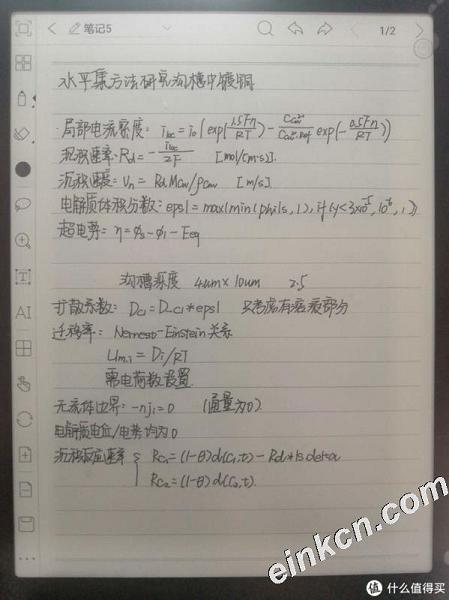 笔记5
1/2
水平集方法研究沟槽中镀铜
局部电流密度: iloc = i0 (exp(1.5Fη/RT) - Ccu²⁺/Ccu²⁺,ref exp(-0.5Fη/RT))
沉积速率: Rd = - iloc/2F [mol/(m·s)]
沉积速度: Vn = Rd Mcu/ρcu [m/s]
电解质体积分数: epsl = max(min(phils,1), if(y<3×10⁻⁵,10⁻⁶,1))
超电势: η = φs - φl - Eeq
沟槽深度 4um×10um 2.5
扩散系数: Dc1 = D_c1*epsl 只考虑有溶液部分
迁移率: Nernest-Einstein关系
Um,i = Di/RT
需电荷数设置
无流体边界: -nji=0 (通量为0)
电解质电位/电势均为0
沉积反应速率 { Rc1 = (1-θ)d(C1,t) - Rd*ls.delta
Rc2 = (1-θ)d(C2,t).
AI
einkcn.com
值 什么值得买